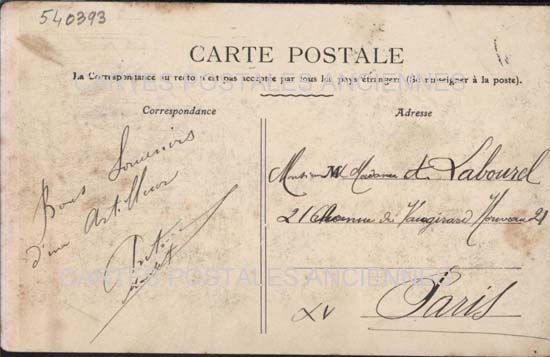 540393
CARTE POSTALE
La Correspondance au recto n'est pas acceptée par tous les pays étrangers (Se renseigner à la poste).
CARTES POSTALES ANCIENNES
Correspondance
Adresse
Bons Souvenirs
d'un Artilleur
Monsieur Madame A. Labourel
21 de Vaugirard Nouveau 21
CARTES POSTALES ANCIENNES
Paris
XV